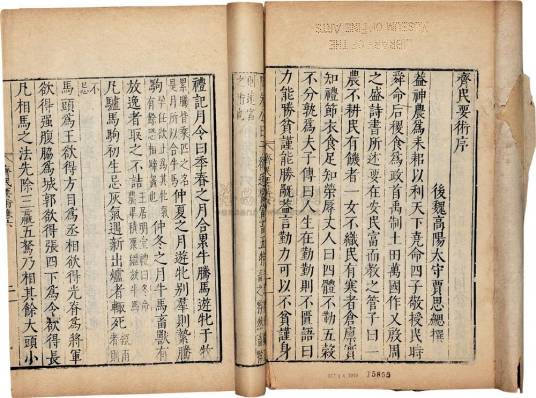 齊民要術序
後魏高陽太守賈思勰撰
蓋神農為耒耜以利天下堯命四子敬授民時
舜命后稷食為政首禹制土田萬國作乂殷周
之盛詩書所述要在安民富而教之管子曰一
農不耕民有饑者一女不織民有寒者倉廩實
知禮節衣食足知榮辱丈人曰四體不勤五穀
不分孰為夫子傳曰人生在勤勤則不匱語曰
力能勝貧謹能勝禍蓋言勤力可以不貧謹身
LIBRARY OF THE
MUSEUM OF FINE ARTS
15855
禮記月令曰季春之月合累牛騰馬遊牝于牧
仲夏之月遊牝別羣則縶騰
仲冬之月牛馬畜獸有
放逸者取之不詰
凡驢馬駒初生忌灰氣遇新出爐者輒死
馬頭為王欲得方目為丞相欲得光脊為將軍
欲得强腹脇為城郭欲得張四下為令欲得長
凡相馬之法先除三羸五駑乃相其餘大頭小